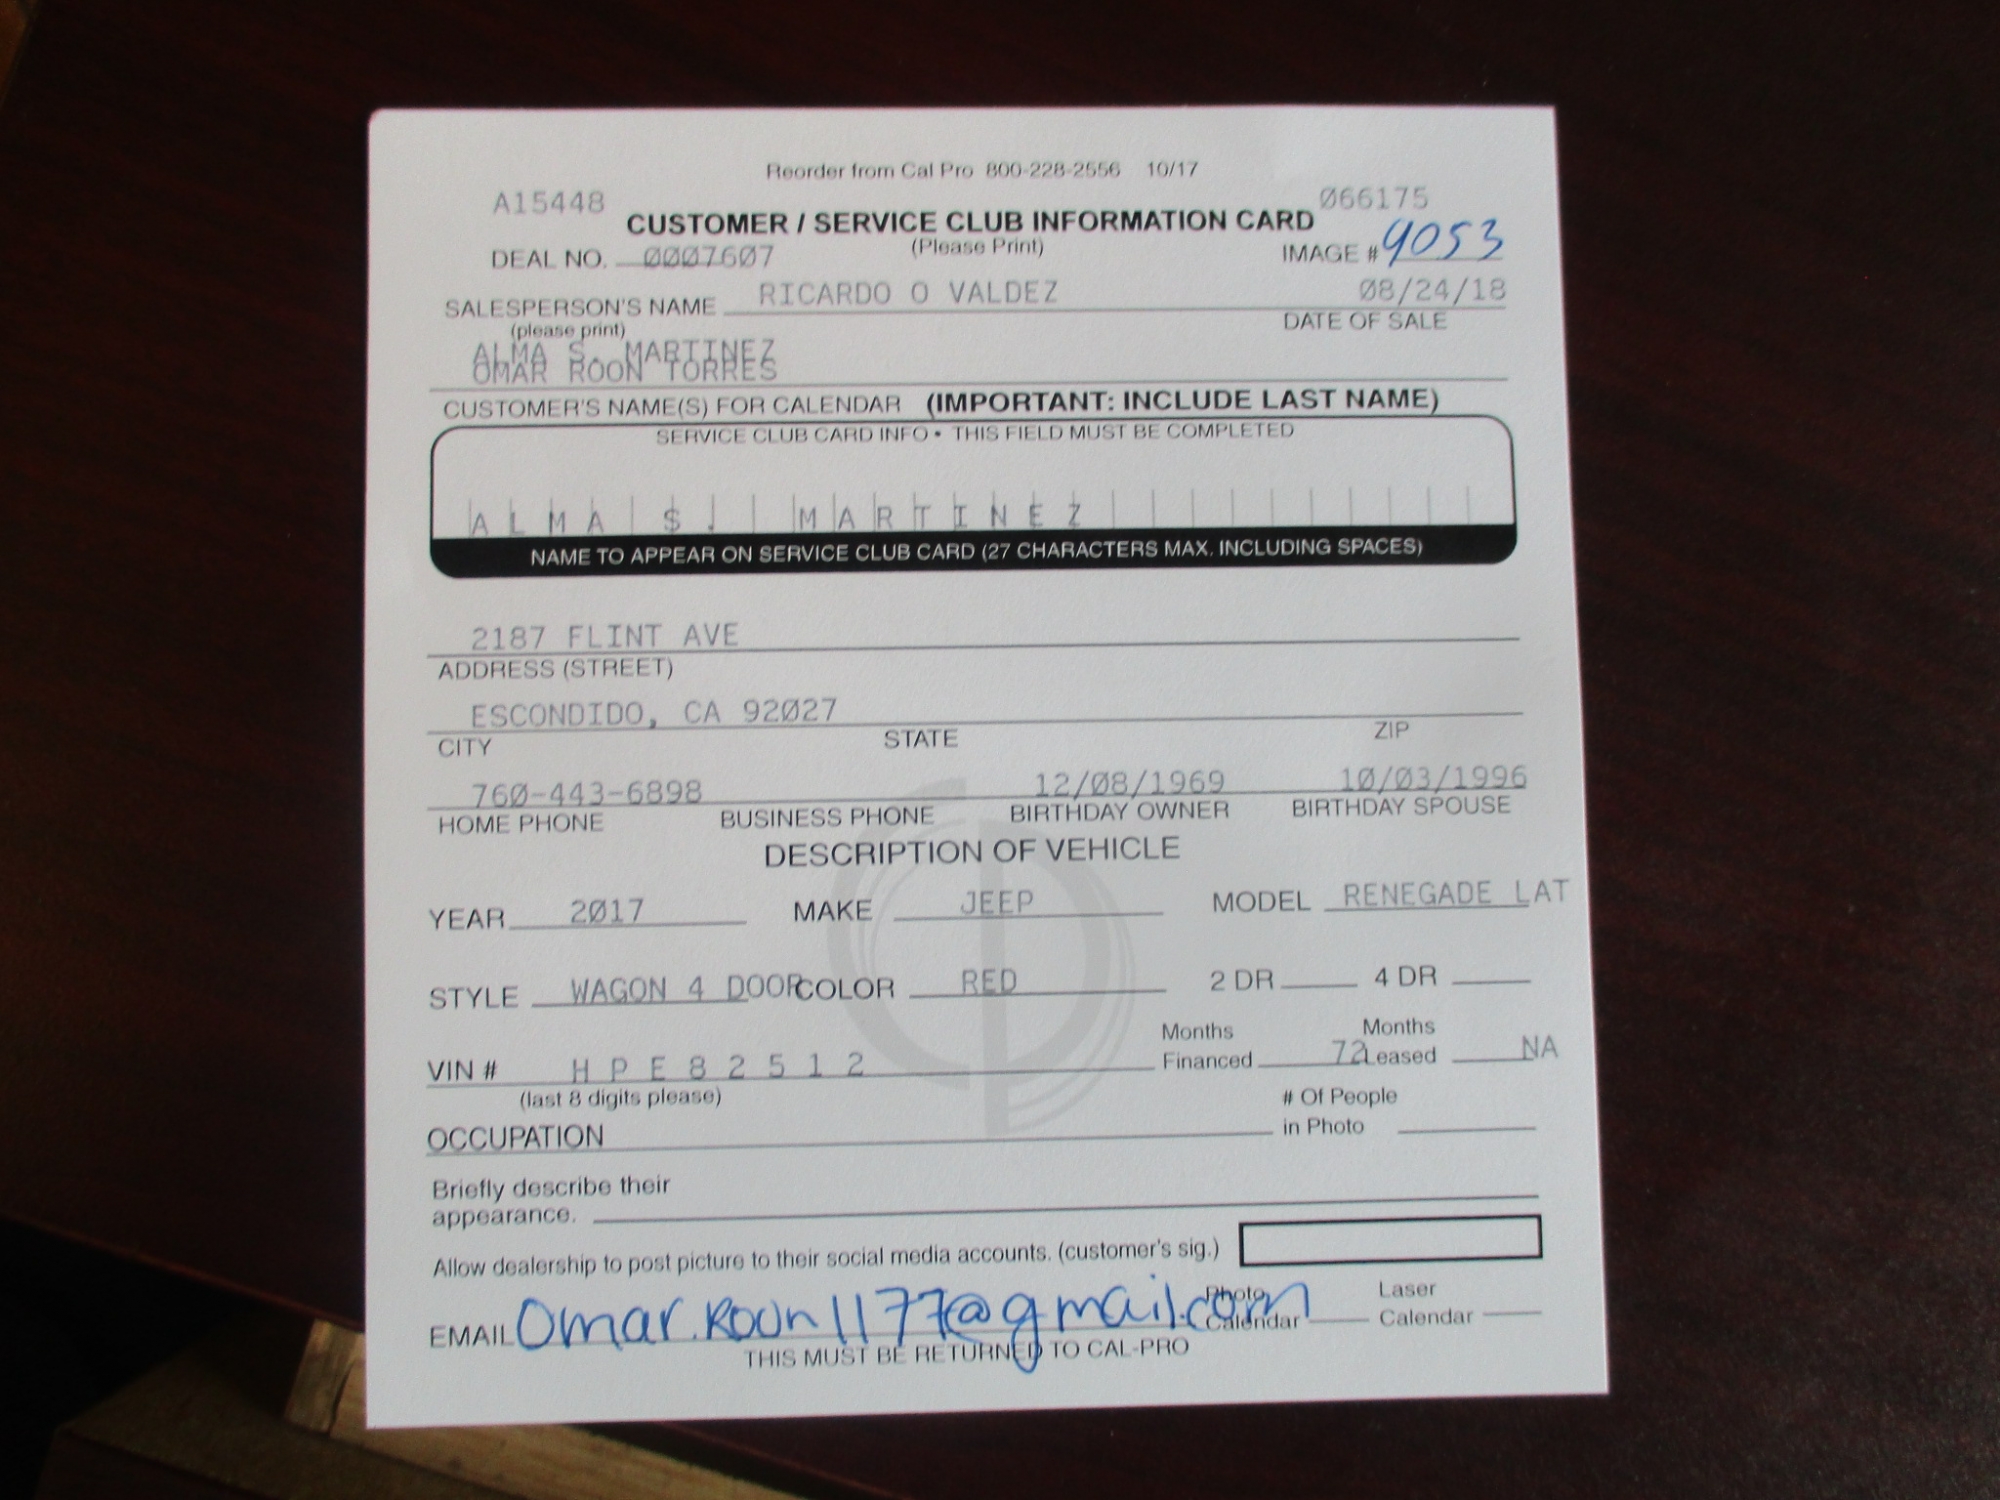 Reorder from Cal Pro 800-228-2556 10/17
A15448 066175
CUSTOMER / SERVICE CLUB INFORMATION CARD
DEAL NO. 0007607 (Please Print) IMAGE # 9053
SALESPERSON'S NAME RICARDO O VALDEZ 08/24/18
(please print) DATE OF SALE
ALMA S. MARTINEZ
OMAR ROON TORRES
CUSTOMER'S NAME(S) FOR CALENDAR (IMPORTANT: INCLUDE LAST NAME)
SERVICE CLUB CARD INFO • THIS FIELD MUST BE COMPLETED
ALMA S. MARTINEZ
NAME TO APPEAR ON SERVICE CLUB CARD (27 CHARACTERS MAX. INCLUDING SPACES)
2187 FLINT AVE
ADDRESS (STREET)
ESCONDIDO, CA 92027
CITY STATE ZIP
760-443-6898 12/08/1969 10/03/1996
HOME PHONE BUSINESS PHONE BIRTHDAY OWNER BIRTHDAY SPOUSE
DESCRIPTION OF VEHICLE
YEAR 2017 MAKE JEEP MODEL RENEGADE LAT
STYLE WAGON 4 DOOR COLOR RED 2 DR 4 DR
Months Months
VIN # H P E 8 2 5 1 2 Financed 72 Leased NA
(last 8 digits please) # Of People
OCCUPATION in Photo
Briefly describe their
appearance.
Allow dealership to post picture to their social media accounts. (customer's sig.)
Photo Laser
EMAIL Omar.Roon1177@gmail.com Calendar Calendar
THIS MUST BE RETURNED TO CAL-PRO